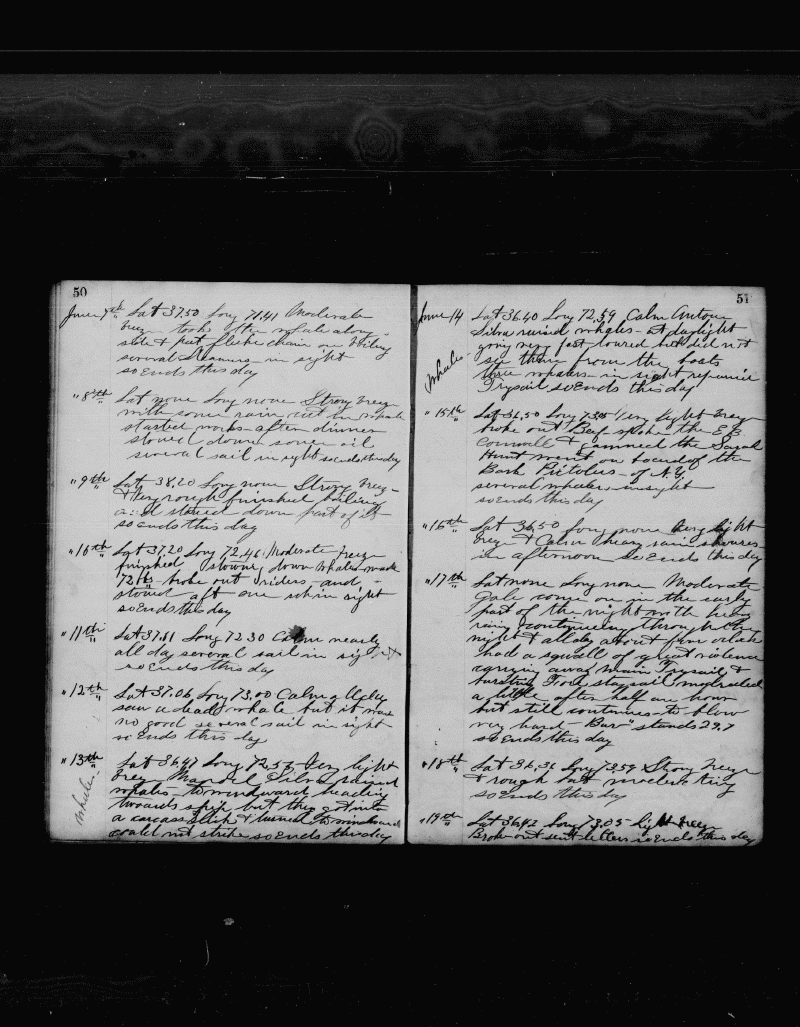 50
June 7th Lat 37.50 Long 71.41 Moderate
breeze took the whale along
side & put fluke chain on Boiling
several steamers in sight
so Ends this day
" 8th Lat none Long none Strong breeze
with some rain cut in whale
started works after dinner
stowed down some oil
several sail in sight so ends this day
" 9th Lat 38.20 Long none Strong breeze
& very rough finished boiling
stowed down part of it
so ends this day
" 10th Lat 37.20 Long 72.46 Moderate breeze
finished stowing down whale made
72 bbls broke out riders and
stowed aft one sch in sight
so Ends this day
" 11th Lat 37.11 Long 72.30 Calm nearly
all day several sail in sight
so ends this day
" 12th Lat 37.06 Long 73.00 Calm
saw a dead whale but it was
no good several sail in sight
so Ends this day
" 13th Lat 36.47 Long 72.57 Very light
breeze Manoel Silva raised
whales to windward heading
towards ship but they got into
a carcass slick & turned to windward
could not strike so Ends this day
Whales
51
June 14 Lat 36.40 Long 72.59 Calm Antone
Silva raised whales at daylight
going very fast lowered but did not
see them from the boats
three whalers in sight repaired
Trysail so Ends this day
Whales
" 15th Lat 36.50 Long Very light breeze
broke out Beef spoke the E.B.
Conwell & gammed the Sarah
Hunt went on board of the
Bark Pictolus of N.Y.
several whalers in sight
so ends this day
" 16th Lat 36.50 Long none Very light
breeze & Calm heavy rain showers
in afternoon so Ends this day
" 17th Lat none Long none Moderate
Gale came on in the early
part of the night with heavy
rain continueing through the
night & all day about five oclock
had a squall of great violence
carrying away main Trysail &
bursting Fore staysail moderated
a little after half an hour
but still continues to blow
very hard Bar" stands 29.7
so Ends this day
" 18th Lat 36.36 Long 73.59 Strong breeze
& rough but moderating
so Ends this day
" 19th Lat 36.42 Long 73.05 light breeze
Broke out sent letters so Ends this day